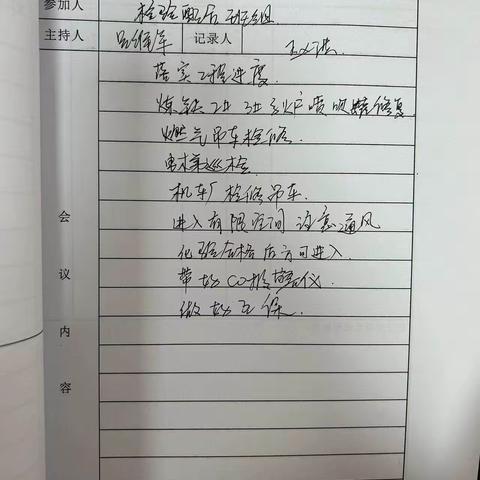 参加人 检验配后 班组
主持人 吕维军 记录人
落实工程进度.
炼铁2# 3# 炉喷吹罐修复
燃气吊车检修.
电梯巡检.
机车厂检修吊车.
进入有限空间 注意通风
化验合格后方可进入.
带好CO报警仪.
做好互保.
会议内容